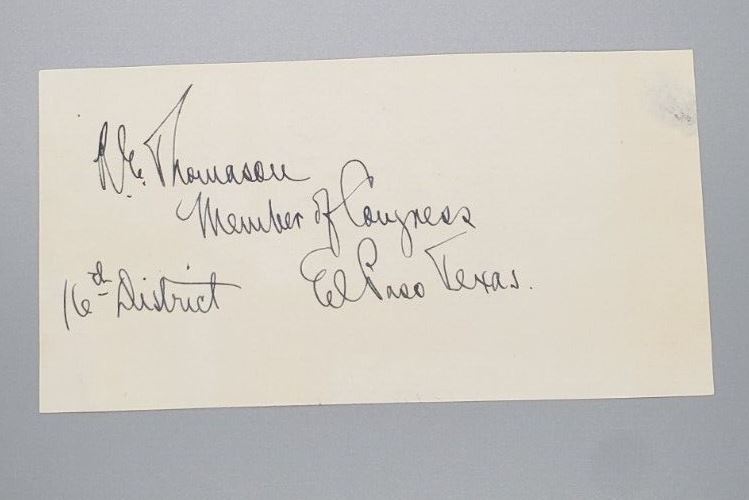 R.E. Thomason
Member of Congress
16th District El Paso Texas.